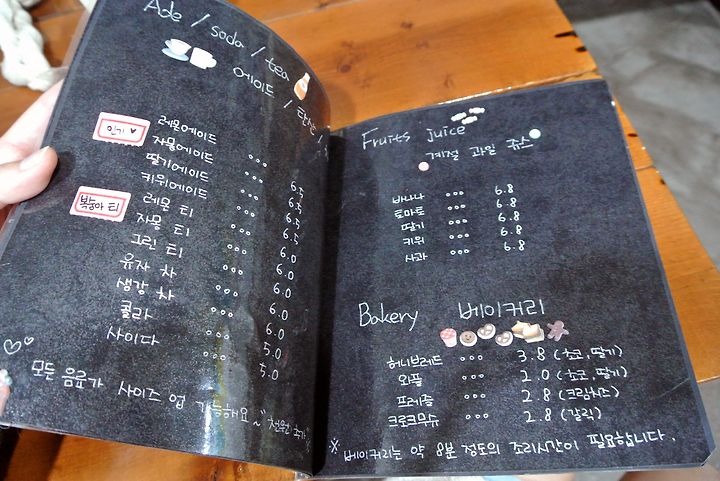 Ade / soda / tea
에이드 / 탄산 /
인기 ♥
레몬에이드
자몽에이드 ooo 6.5
딸기에이드 ooo 6.5
키위에이드 ooo 6.5
복숭아 티
레몬 티 ooo 6.5
자몽 티 ooo 6.0
그린 티 ooo 6.0
유자 차 ooo 6.0
생강 차 ooo 6.0
콜라 ooo 5.0
사이다 ooo 5.0
모든 음료가 사이즈 업 가능해요~ 천원 추가
Fruits juice
계절 과일 쥬스
바나나 ooo 6.8
토마토 ooo 6.8
딸기 ooo 6.8
키위 ooo 6.8
사과 ooo
Bakery 베이커리
허니브레드 ooo 3.8 (초코, 딸기)
와플 ooo 2.0 (초코, 딸기)
프레즐 ooo 2.8 (크림치즈)
크로크무슈 ooo 2.8 (갈릭)
※ 베이커리는 약 8분 정도의 조리시간이 필요합니다.